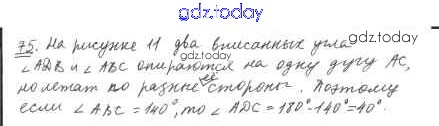 gdz.today
75. На рисунке 11 два вписанных угла
gdz.today
∠ADB и ∠ABC опираются на одну дугу AC,
но лежат по разные её стороны. Поэтому
если ∠ABC = 140°, то ∠ADC = 180°-140°=40°.
gdz.today